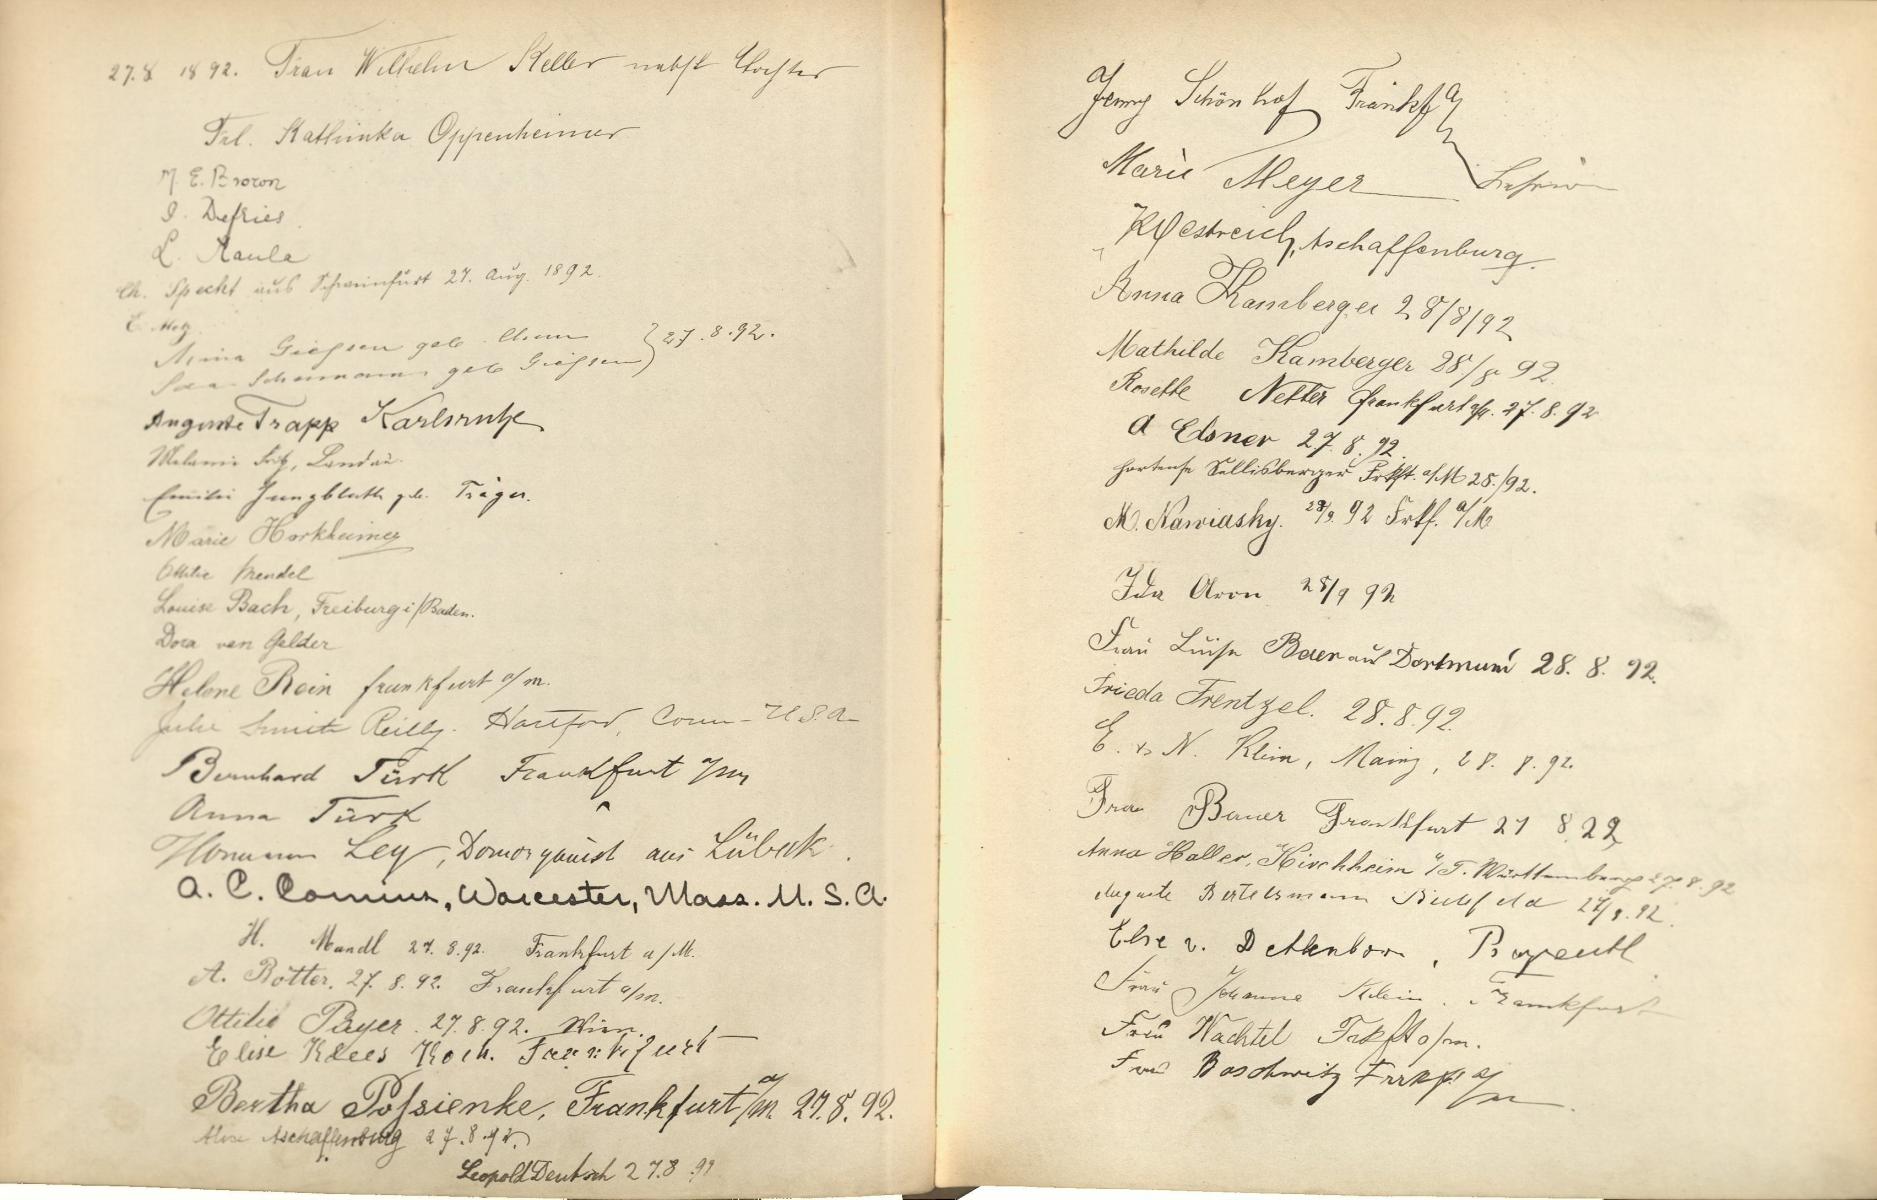 27.8 1892. Frau Wilhelm Keller nebst Tochter
Frl. Kathinka Oppenheimer
M. E. Brown
S. Defries
L. Kaula
Ch. Specht aus Schweinfurt 27. Aug. 1892.
E. Metz
Giessen geb. 27.8.92.
Schumann geb Giessen
Auguste Trapp Karlsruhe
Melanie Landau.
Emilie Jungbluth geb. Träger.
Marie Horkheimer
Ottilie Mendel
Louise Bach, Freiburg i/Baden.
Dora van Gelder
Helene Rein Frankfurt a/m.
Julie Smith Reilly. Hartford, Conn - U.S.A-
Bernhard Türk Frankfurt a/m
Anna Türk
Hermann Ley, Domorganist aus Lübeck.
A. C. Worcester, Mass. U. S. A.
H. Mandl 27. 8.92. Frankfurt a/M.
A. Rotter. 27. 8. 92. Frankfurt a/m.
Ottilie Payer. 27.8.92. Wien.
Elise Klees Koch. Frankfurt
Bertha Possienke, Frankfurt a/m 27.8.92.
Aschaffenburg 27.8.92.
Leopold Deutsch 27.8.92
Jenny Schönhof Frankf a/
Marie Meyer
Oestreich, Aschaffenburg.
Anna Kamberger 28/8/92
Mathilde Kamberger 28/8 92.
Rosette Netter Frankfurt a/M. 27.8.92
A Elsner 27.8.92.
Hortense Sullisberger Frkft. a/M 28./92.
M. Nawiasky. 28/8. 92 Frkf. a/M
Ida Aron 28/9 92
Frau Luise Baer aus Dortmund 28. 8. 92.
Frieda Frentzel. 28.8.92.
E. & N. Klein, Mainz, 28. 8.92.
Frau Bauer Frankfurt 27 8 92
Anna Haller, Kirchheim u/T. Württemberg 27.8.92
Auguste Bertelsmann Bielefeld 27/8.92.
Else v. Dettenborn,
Frau Johanna Klein. Frankfurt
Frau Wachtel Frkft a/m.
Frau Boschwitz Frrkft a/m